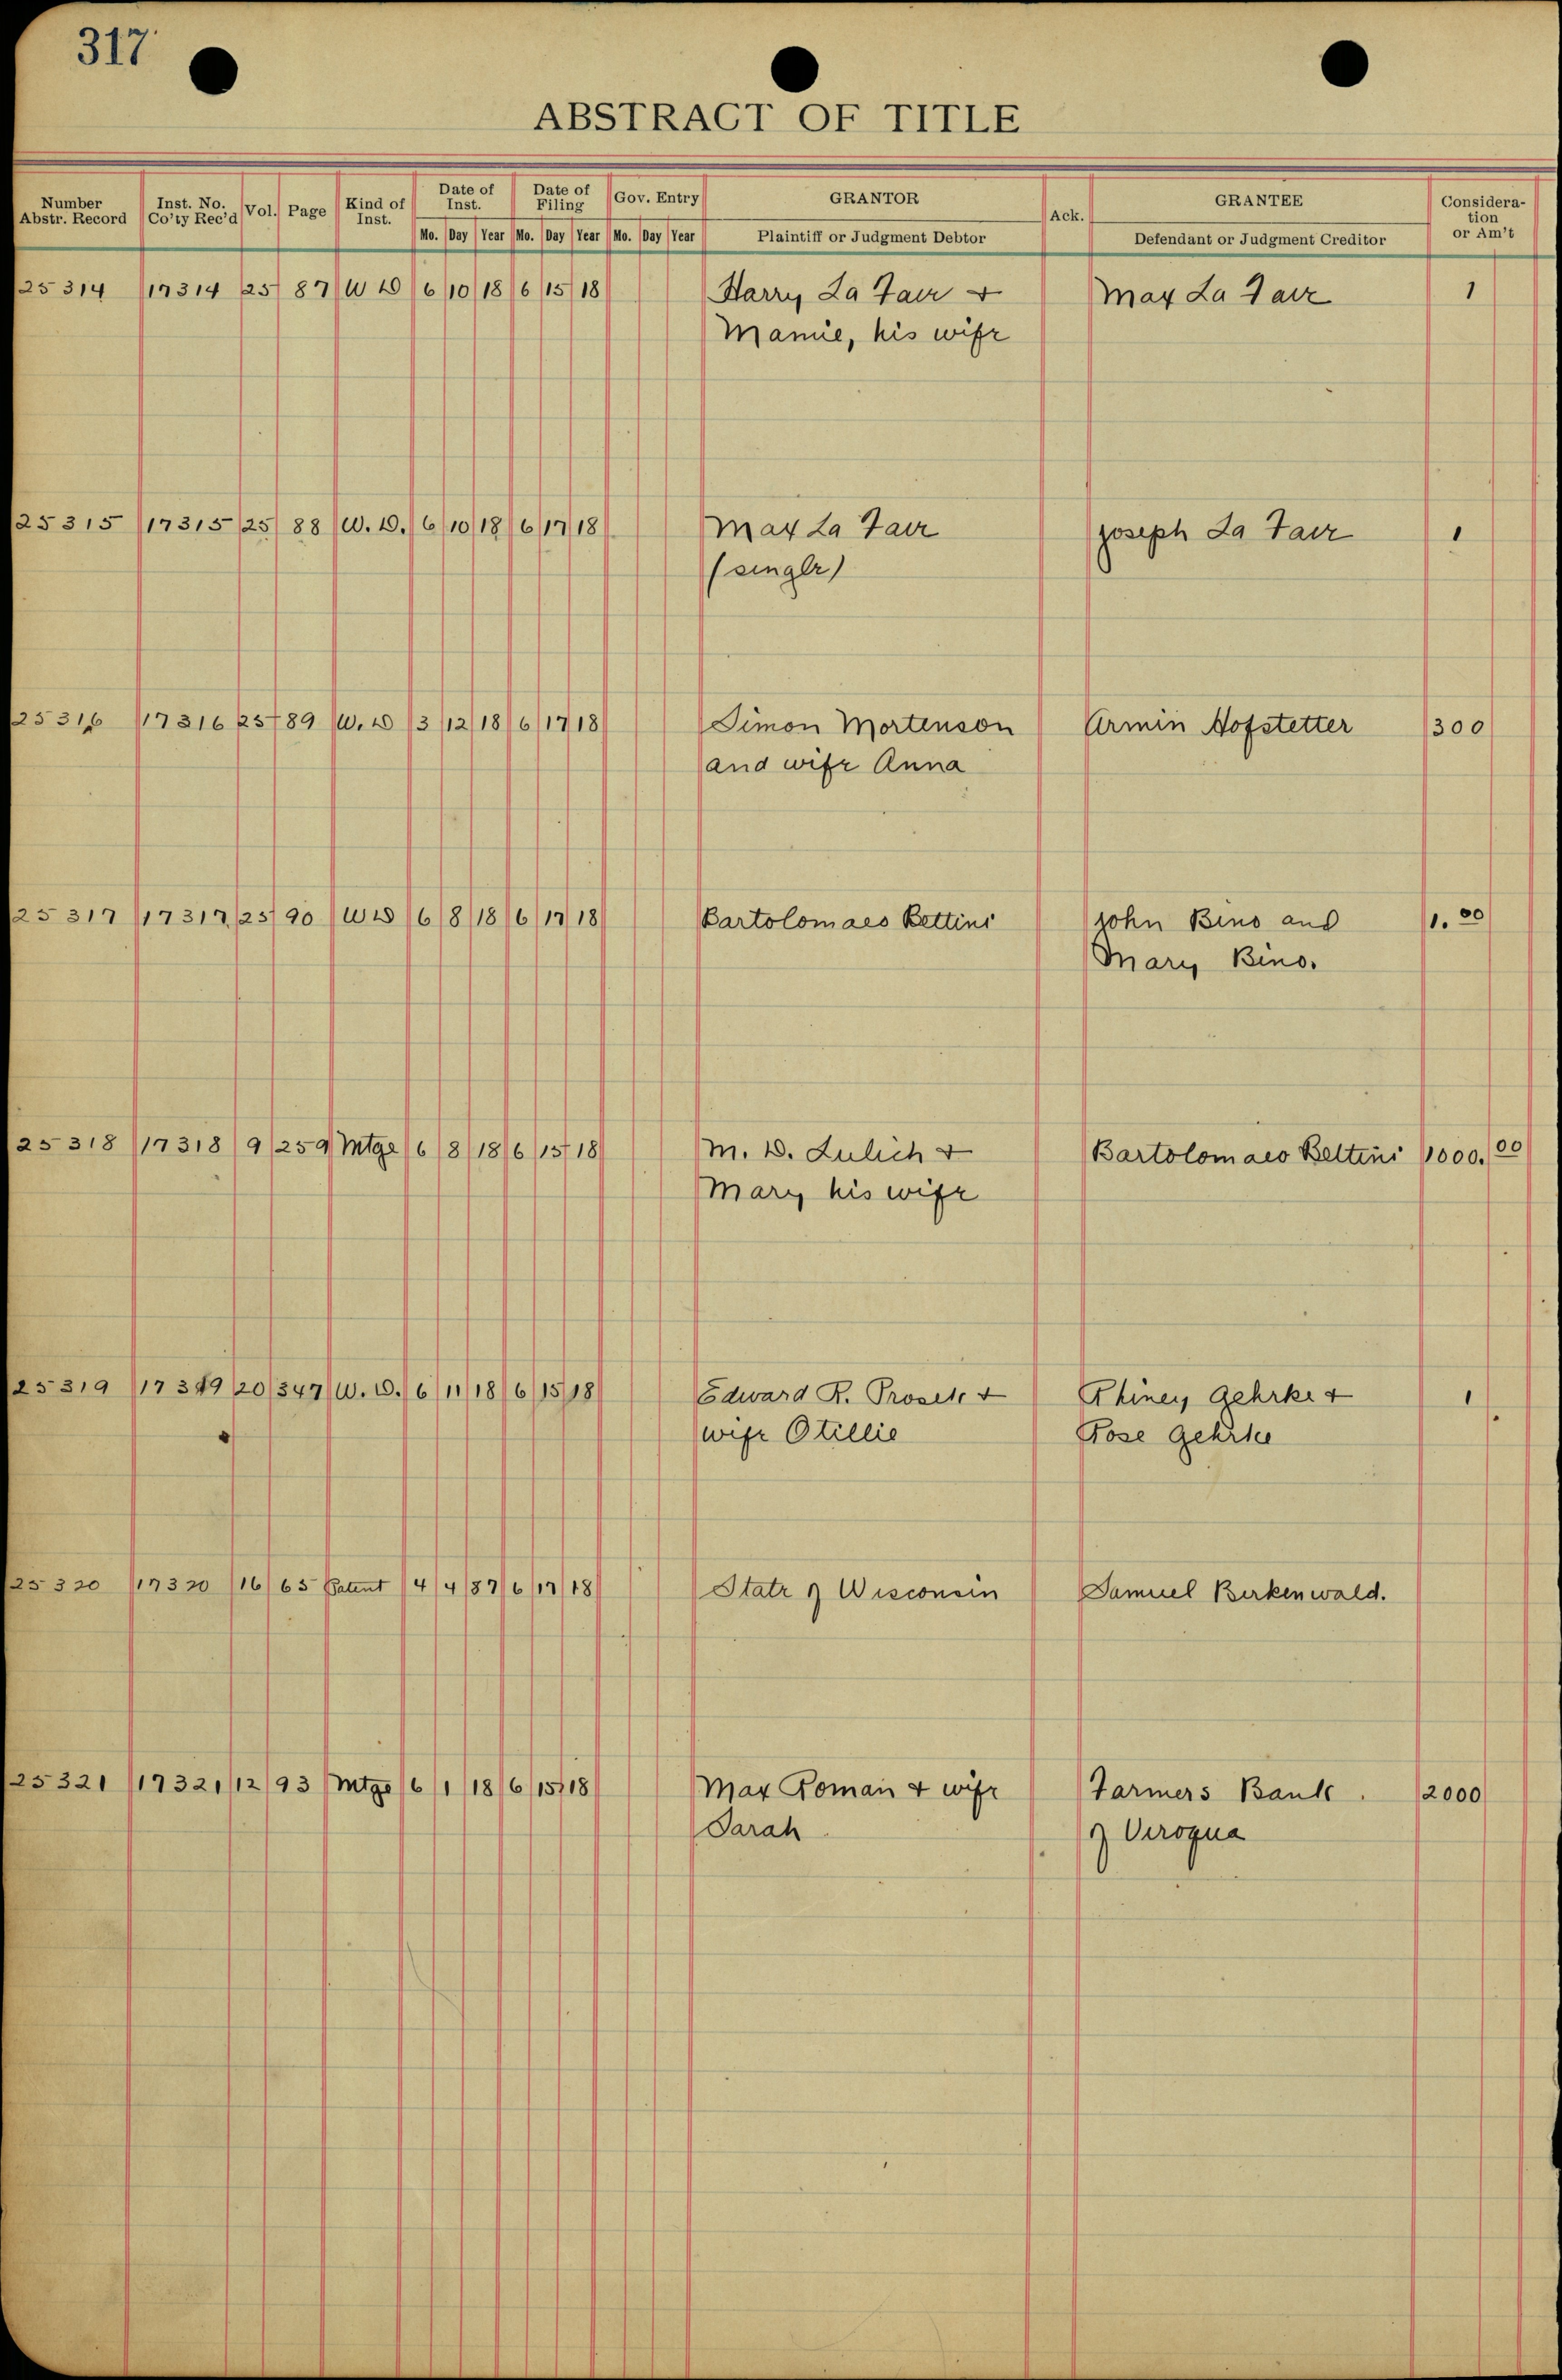 317
ABSTRACT OF TITLE
Number Abstr. Record Inst. No. Co'ty Rec'd Vol. Page Kind of Inst. Date of Inst. Date of Filing Gov. Entry GRANTOR Ack. GRANTEE Consideration or Am't
Mo. Day Year Mo. Day Year Mo. Day Year Plaintiff or Judgment Debtor Defendant or Judgment Creditor
25314 17314 25 87 W D 6 10 18 6 15 18 Harry La Fair + Max La Fair 1
Mamie, his wife
25315 17315 25 88 W. D. 6 10 18 6 17 18 Max La Fair Joseph La Fair 1
(single)
25316 17316 25 89 W. D 3 12 18 6 17 18 Simon Mortenson Armin Hofstetter 300
and wife Anna
25317 17317 25 90 WD 6 8 18 6 17 18 Bartolomaeo Bettini John Bino and 1.00
Mary Bino.
25318 17318 9 259 Mtge 6 8 18 6 15 18 M. D. Lulich + Bartolomaeo Bettini 1000.00
Mary his wife
25319 17319 20 347 W. D. 6 11 18 6 15 18 Edward R. + Rhiney Gehrke + 1
wife Otillie Rose Gehrke
25320 17320 16 65 Patent 4 4 87 6 17 18 State of Wisconsin Samuel Birkenwald.
25321 17321 12 93 Mtge 6 1 18 6 15 18 Max Roman + wife Farmers Bank 2000
Sarah of Viroqua